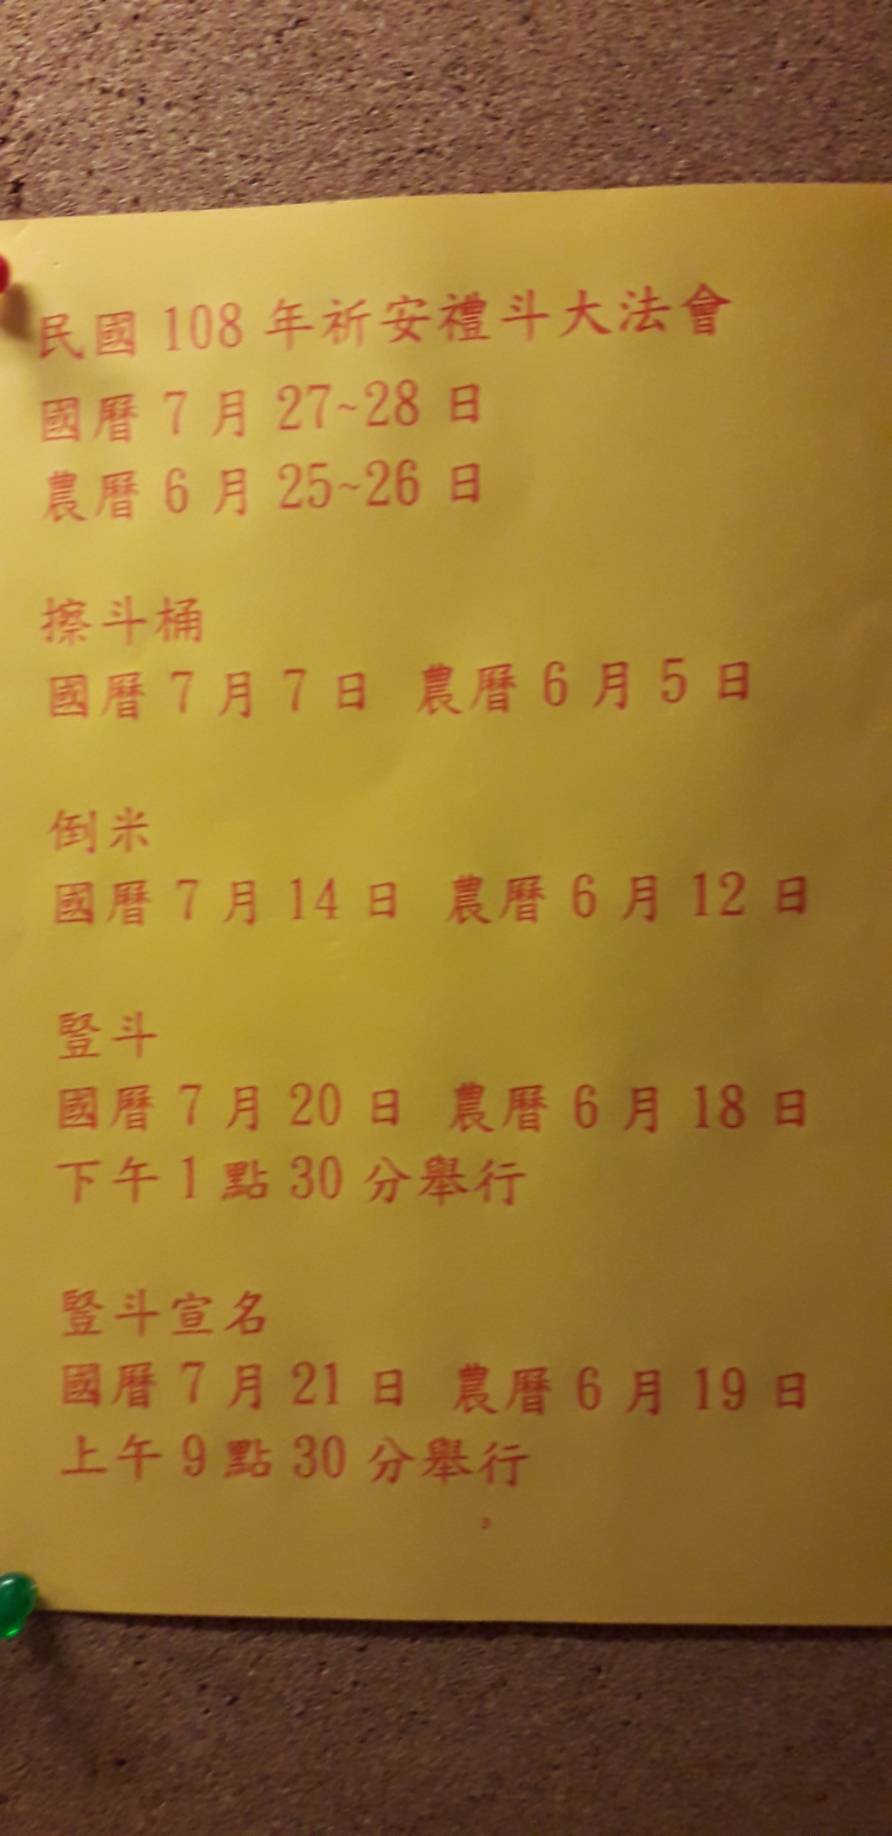 民國 108 年祈安禮斗大法會
國曆 7 月 27~28 日
農曆 6 月 25~26 日
擦斗桶
國曆 7 月 7 日 農曆 6 月 5 日
倒米
國曆 7 月 14 日 農曆 6 月 12 日
豎斗
國曆 7 月 20 日 農曆 6 月 18 日
下午 1 點 30 分舉行
豎斗宣名
國曆 7 月 21 日 農曆 6 月 19 日
上午 9 點 30 分舉行